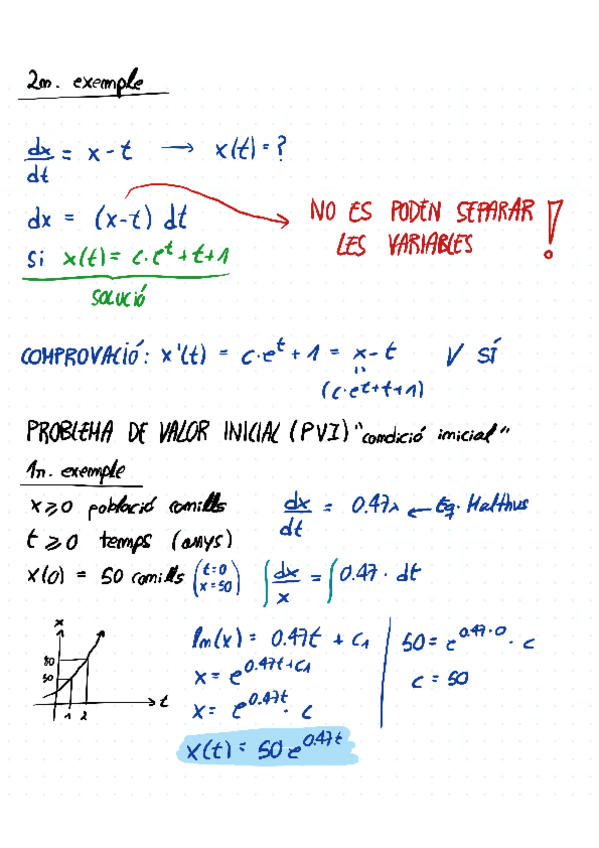 2n. exemple
dx/dt = x - t → x(t) = ?
dx = (x-t) dt
NO ES PODEN SEPARAR
LES VARIABLES !
Si x(t) = c·e^t + t + 1
SOLUCIÓ
COMPROVACIÓ: x'(t) = c·e^t + 1 = x - t V SÍ
(c·e^t+t+1)
PROBLEMA DE VALOR INICIAL (PVI) "condició inicial"
1r. exemple
x ≥ 0 població conills
dx/dt = 0.47x ← Eq. Malthus
t ≥ 0 temps (anys)
x(0) = 50 conills (t=0 x=50)
∫ dx/x = ∫ 0.47 · dt
x
80
50
1 2
t
ln(x) = 0.47t + C1
x = e^0.47t+C1
x = e^0.47t · c
x(t) = 50 e^0.47t
50 = e^0.47·0 · c
c = 50